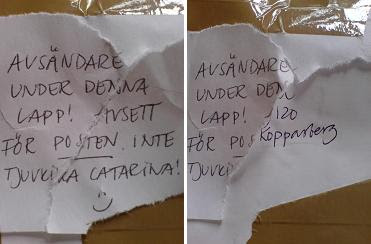 AVSÄNDARE
UNDER DENNA
LAPP! AVSETT
FÖR POSTEN. INTE
TJUVKIKA CATARINA!
AVSÄNDARE
UNDER DEN
LAPP! 120
FÖR POS Kopparberg
TJUVKI